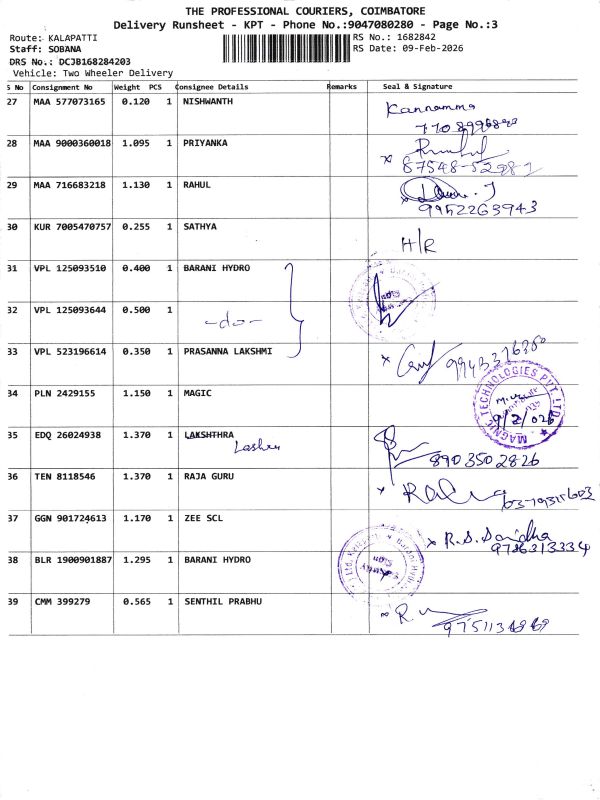 THE PROFESSIONAL COURIERS, COIMBATORE
Delivery Runsheet - KPT - Phone No.:9047080280 - Page No.:3
Route: KALAPATTI
RS No.: 1682842
Staff: SOBANA
RS Date: 09-Feb-2026
DRS No.: DCJB168284203
Vehicle: Two Wheeler Delivery
S No Consignment No Weight PCS Consignee Details Remarks Seal & Signature
27 MAA 577073165 0.120 1 NISHWANTH Kannamma
28 MAA 9000360018 1.095 1 PRIYANKA
87548-52981
29 MAA 716683218 1.130 1 RAHUL
9952263943
30 KUR 7005470757 0.255 1 SATHYA H/R
31 VPL 125093510 0.400 1 BARANI HYDRO
32 VPL 125093644 0.500 1 -do-
33 VPL 523196614 0.350 1 PRASANNA LAKSHMI
34 PLN 2429155 1.150 1 MAGIC MAGNIC TECHNOLOGIES PVT LTD
9/2/026
35 EDQ 26024938 1.370 1 LAKSHTHRA
8903502826
36 TEN 8118546 1.370 1 RAJA GURU
37 GGN 901724613 1.170 1 ZEE SCL R.S. Sandha
9786313334
38 BLR 1900901887 1.295 1 BARANI HYDRO
39 CMM 399279 0.565 1 SENTHIL PRABHU